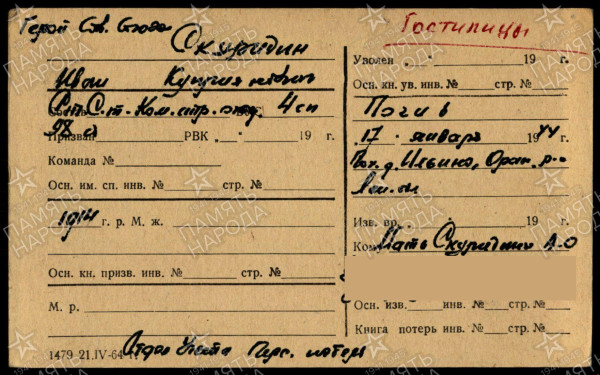 Герой Св. Союза
Скуридин
Иван Куприянович
Ст. С-т. Ком. стр. отд. 4 сп
98 сд
Призван РВК „ “ 19 г.
Команда №
Осн. им. сп. инв. № стр. №
1914 г. р. М. ж.
Осн. кн. призв. инв. № стр. №
М. р.
1479 21.IV-64 г.
Отдел Учета Перс. потерь
Гостилицы
Уволен „ “ 19 г.
Осн. кн. ув. инв. № стр. №
Погиб
17 января 1944 г.
Пох. д. Ильино, Оран. р-н
Лен. обл
Изв. вр. 19 г.
Ком Мать Скуридина А. О
Осн. изв. инв. № стр. №
Книга потерь инв. № стр. №
ПАМЯТЬ НАРОДА